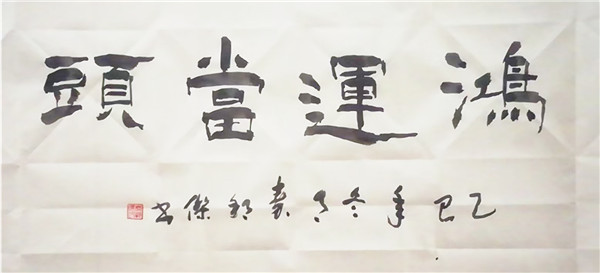 鴻運當頭
乙巳年冬月袁傑書